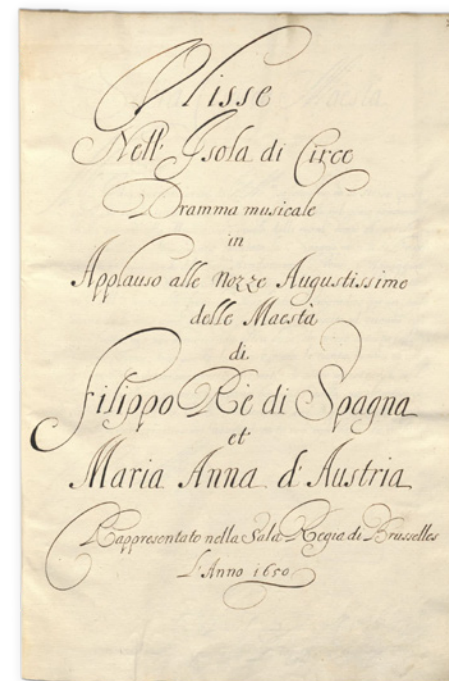 Ulisse
Nell' Isola di Circe
Dramma musicale
in
Applauso alle Nozze Augustissime
delle Maestà
di
Filippo Rè di Spagna
et
Maria Anna d'Austria
Rappresentato nella Sala Regia di Brusselles
L'Anno 1650